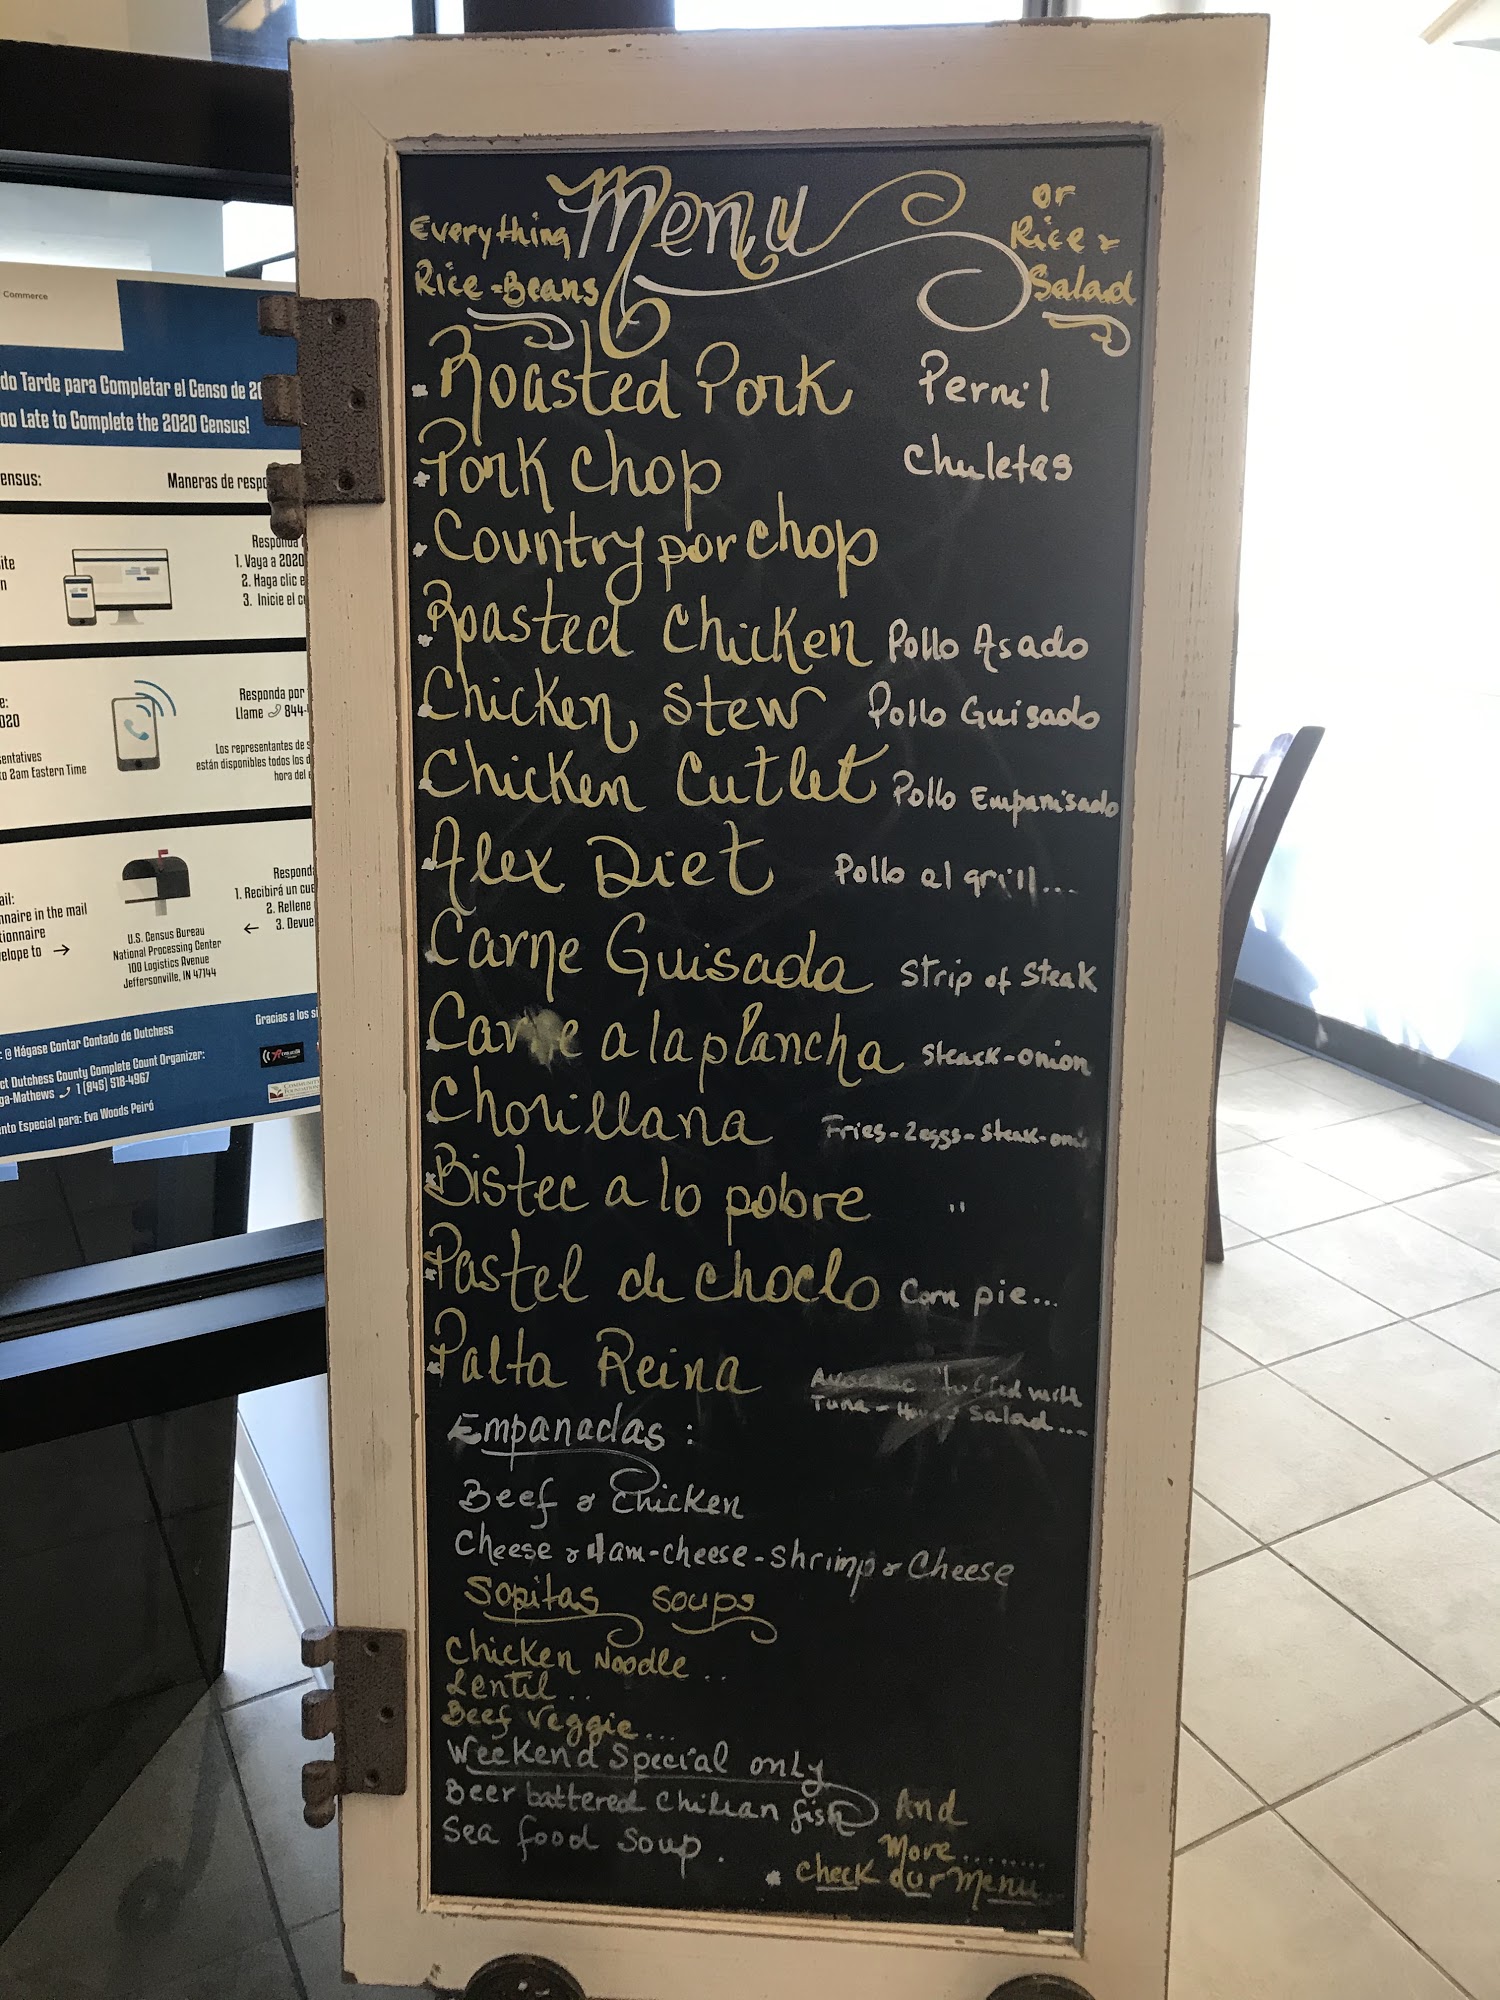 Menu
Everything
Rice-Beans
or
Rice &
Salad
Roasted Pork Pernil
Pork Chop Chuletas
Country por chop
Roasted Chicken Pollo Asado
Chicken Stew Pollo Guisado
Chicken Cutlet Pollo Empanisado
Alex Diet Pollo al grill...
Carne Guisada Strip of Steak
Carne a la plancha Steack-onion
Chorillana Fries-2eggs-Steak-oni
Bistec a lo pobre "
Pastel de choclo Corn pie...
Palta Reina Avocado stuffed with
Tuna - House Salad...
Empanadas:
Beef & Chicken
Cheese & Ham-cheese-Shrimp & Cheese
Sopitas Soups
Chicken Noodle..
Lentil..
Beef Veggie...
Weekend Special only
Beer battered Chilean fish
Sea food Soup.
And
More........
* Check our Menu...
Commerce
do Tarde para Completar el Censo de 20
oo Late to Complete the 2020 Census!
ensus: Maneras de resp
ite
n
Responda
1. Vaya a 2020
2. Haga clic e
3. Inicie el c
e:
020
sentatives
to 2am Eastern Time
Responda por
Llame 844-
Los representantes de s
están disponibles todos los d
hora del
ail:
nnaire in the mail
tionnaire
velope to →
U.S. Census Bureau
National Processing Center
100 Logistics Avenue
Jeffersonville, IN 47144
Respond
1. Recibirá un cue
2. Rellene
← 3. Devue
: @ Hágase Contar Contado de Dutchess
Gracias a los si
ct Dutchess County Complete Count Organizer:
ga-Mathews 1 (845) 518-4967
ento Especial para: Eva Woods Peiró